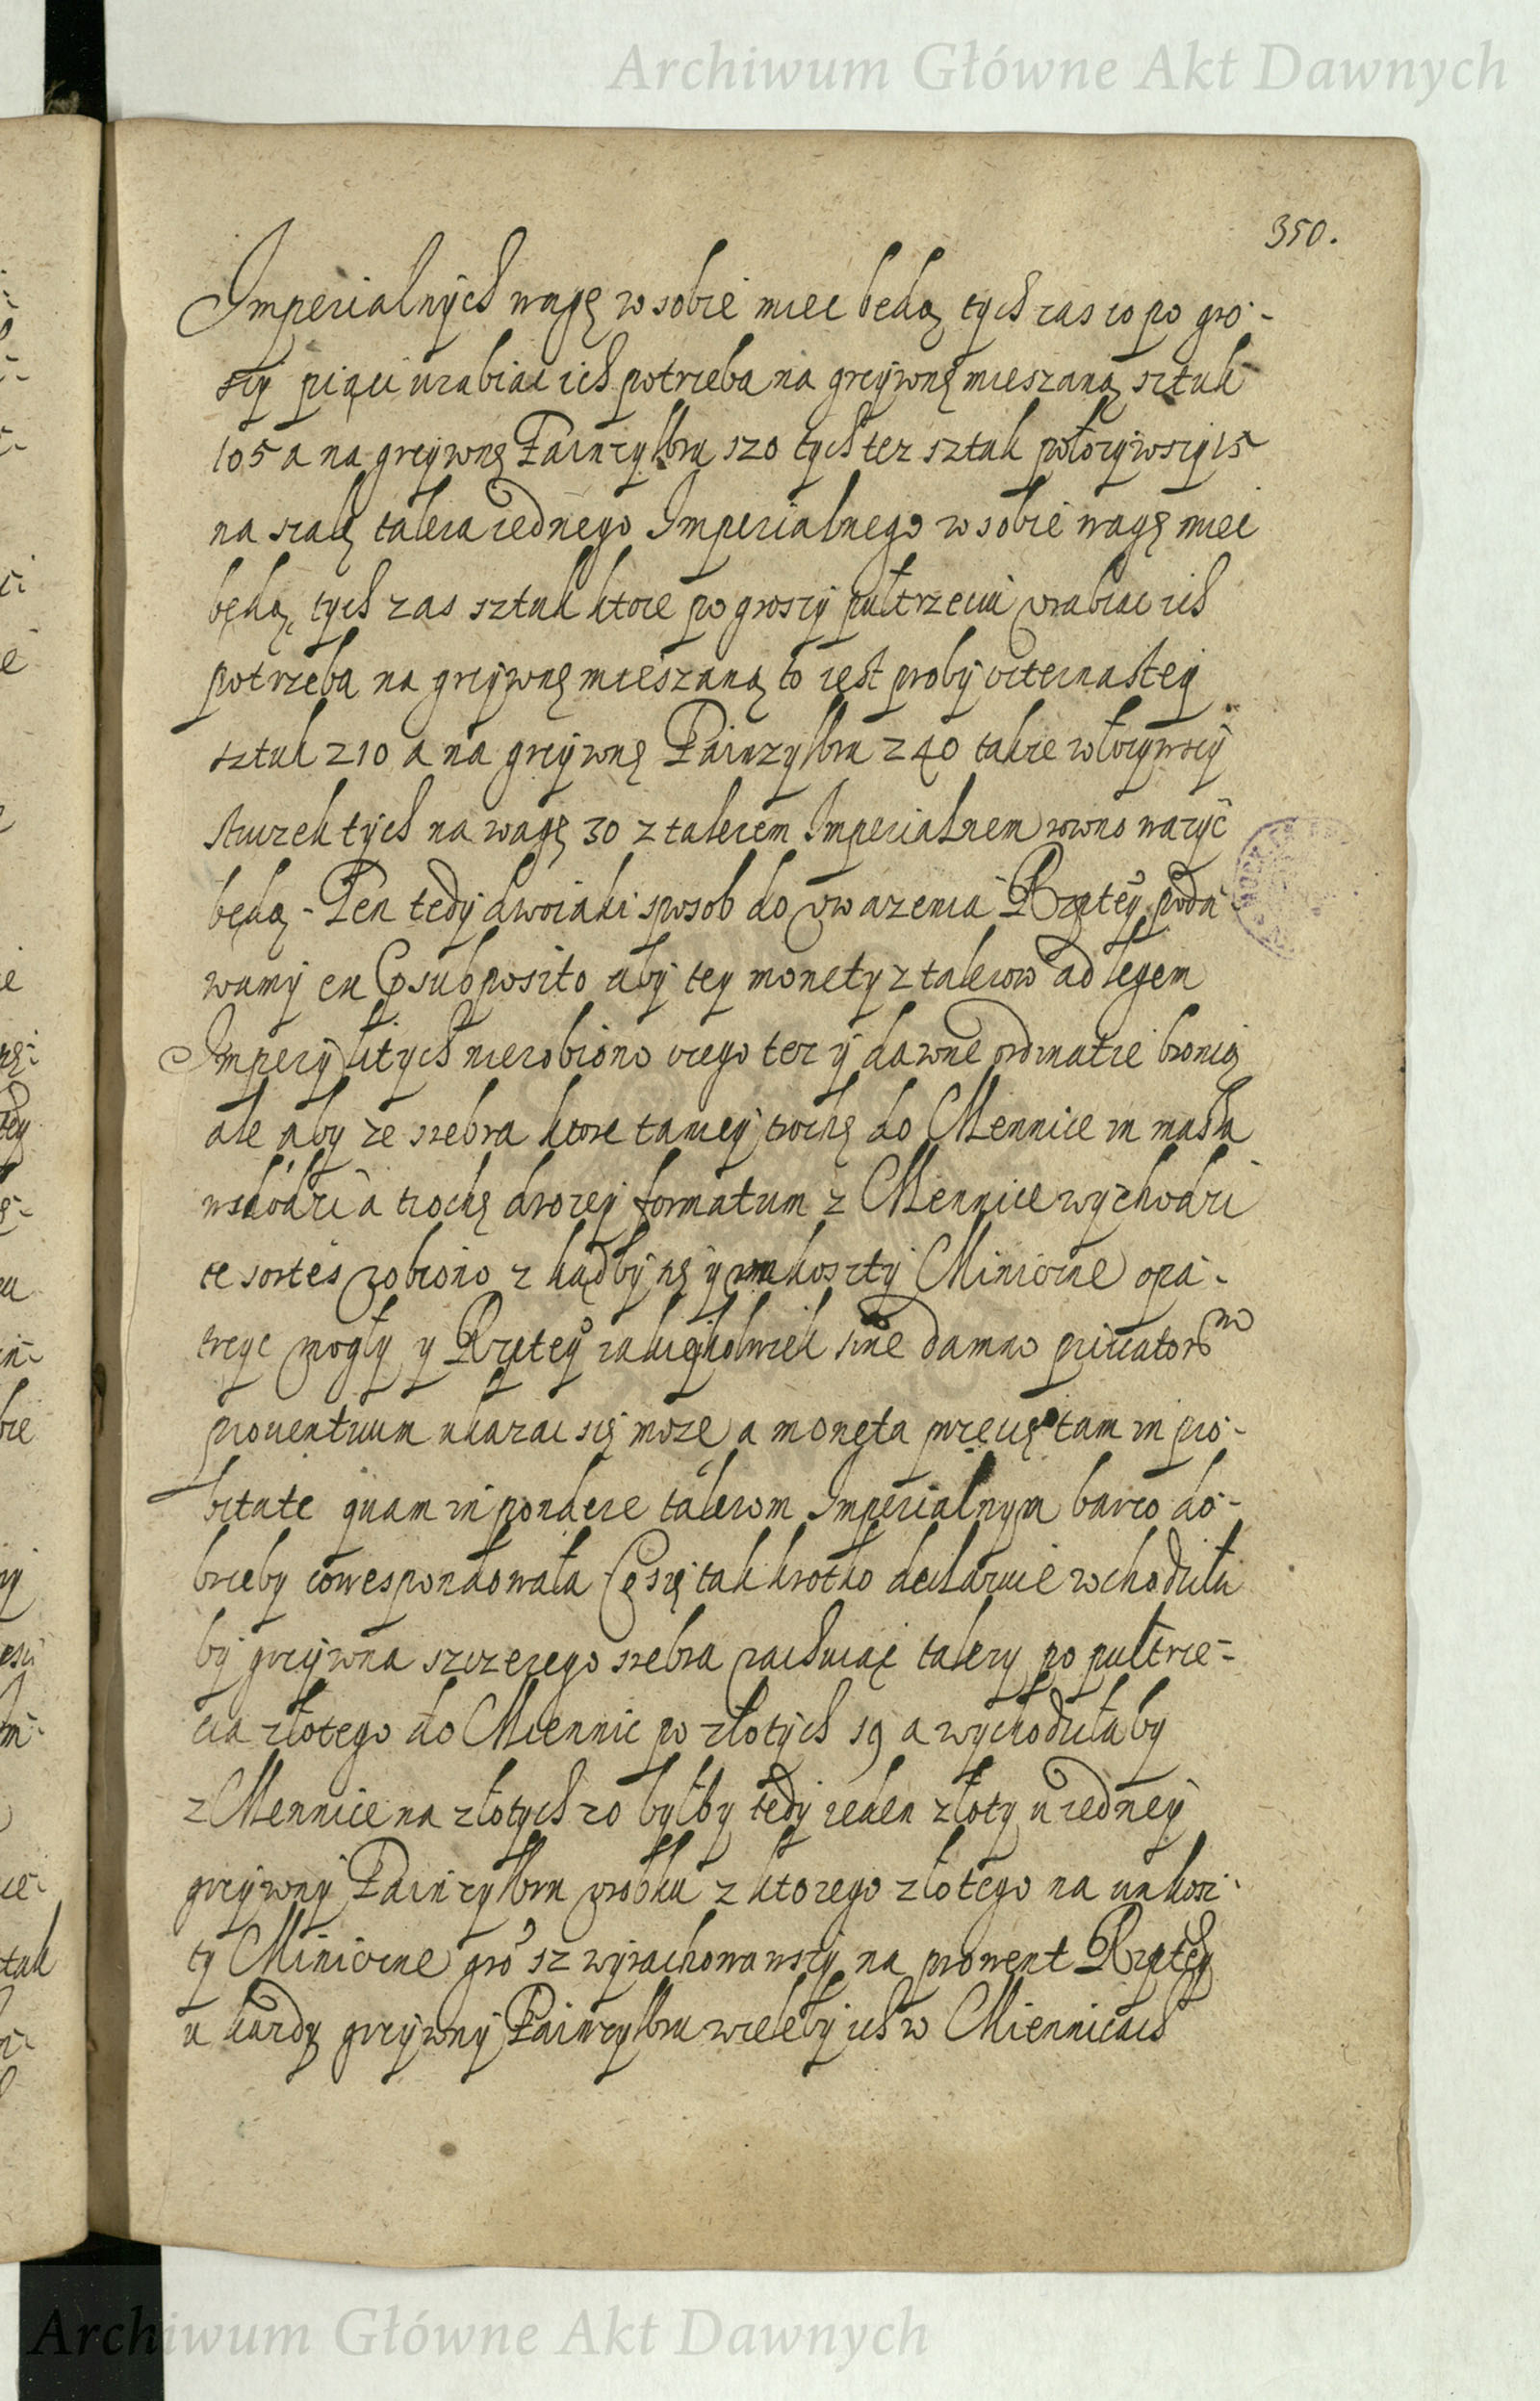 Archiwum Główne Akt Dawnych
350.
Imperialnych wagę w sobie miec będą tych zas co po gro-
szy piąci urabiac ich potrzeba na grzywnę mieszaną sztuk
105 a na grzywnę Fainzylbru 120 tych tez sztuk połozywszy 15
na szalę talera iednego Imperialnego w sobie wagę miec
będą, tych zas sztuk ktore po groszy pułtrzeciu vrabiac ich
potrzeba na grzywnę mieszaną to iest proby czternastey
sztuk 210 a na grzywnę Fainzylbru 240 takze włozywszy
sztuczek tych na wagę 30 z talerem Imperialnem rowno wazyc
będą - Ten tedy dwoiaki sposob do vwazenia Rzptey poda
wamy ex suposito aby tey monety z talerow ad legem
Imperÿ bitych nie robiono czego tez y dawne ordinatie bronią
ale aby ze srebra ktore taniey trochę do Mennice in massa
wchodzi a trochę drozey formatum z Mennice wychodzi
te sortes robiono z kądby się y koszty Miniczne opa-
trzyc mogły y Rzptey iakieykolwiek sine damno priuatorum
prouentuum ukazac się moze a moneta przecię tam in pro-
bitate quam in pondere talerom Imperialnym barzo do-
brzeby correspondowała się tak krotko declaruie wchodziła
by grzywna szczerego srebra rachuiąc talery po pułtrze-
cia złotego do Miennic po złotych 19 a wychodziłaby
z Mennice na złotych 20 byłby tedy ieden złoty u iedney
grzywny Fainzylbru zrobku z ktorego złotego na unkosz-
ty Miniczne gro 12 wyrachowawszy na prowent Rzptey
u kazdy grzywny Fainzylbru wieleby ich w Miennicach
Archiwum Główne Akt Dawnych